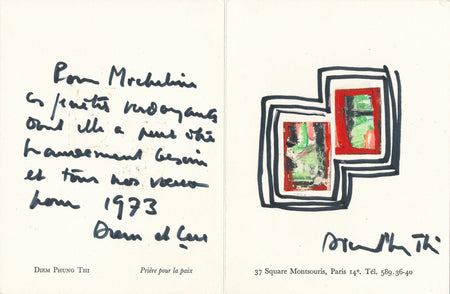 Pour Micheline
ces verdoyants
dont elle a peut être
grandement besoin
et tous nos voeux
pour 1973
Diem et
DIEM PHUNG THI
Prière pour la paix
Diem Phung Thi
37 Square Montsouris, Paris 14e. Tél. 589.36-40